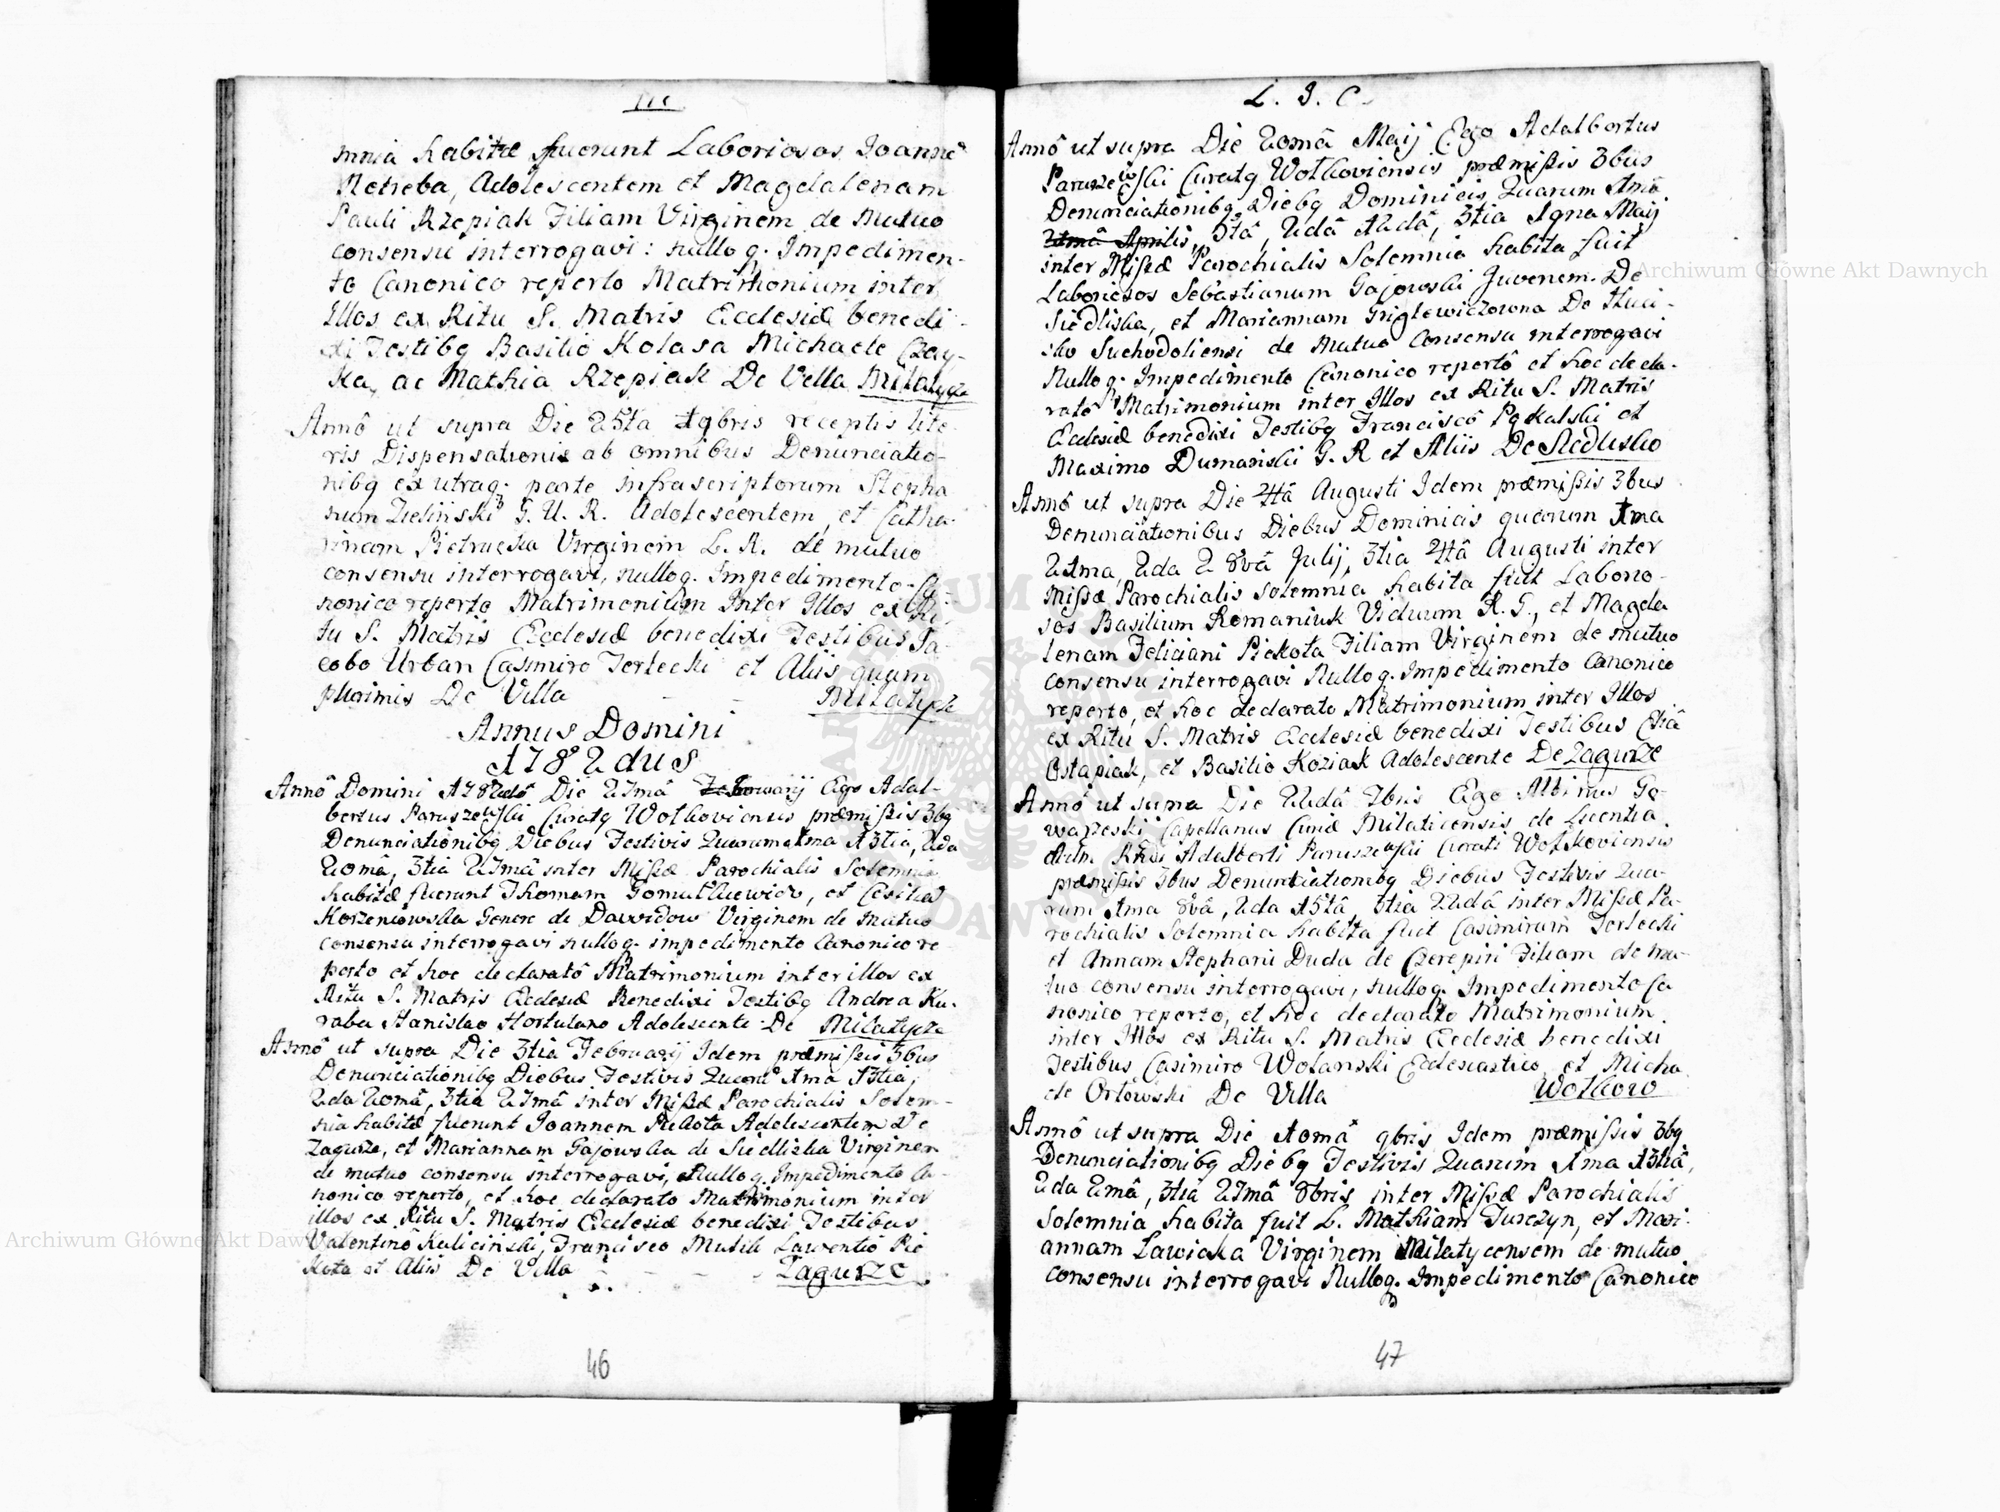 mnia habitæ fuerunt Laboriosos Joanne
Netreba, Adolescentem et Magdalenam
Pauli Rzepiak Filiam Virginem de mutuo
consensu interrogavi: nulloq. Impedimen-
to Canonico reperto Matrimonium inter
Illos ex Ritu S. Matris Ecclesiæ benedi-
xi Testibq Basilio Kolasa Michaele Czay-
ka, ac Mathia Rzepiak De Vella Milatycze
Annô ut supra Die 25ta 9bris receptis lite-
ris Dispensationis ab omnibus Denunciatio-
nibq ex utraq. parte infrascriptorum Stepha
num Zieliński G. U. R. Adolescentem et Catha-
rinam Pietrucka Virginem L. R. de mutuo
consensu interrogavi, nulloq. Impedimento Ca-
nonico reperto Matrimonium Inter Illos ex Ri-
tu S. Matris Ecclesiæ benedixi Testibus Ja-
cobo Urban Casimiro Terlecki et Aliis quam
plurimis De Villa Milatycze
Annus Domini
1782dus
Annô Domini 1782dô Die 27mâ Ego Adal-
bertus Paruszewski Curatq Wolkoviensis præmissis 3bq
Denunciationibq Diebus Festivis Quarum 1ma 13tia, 2da
20mâ, 3tia 27mâ inter Missæ Parochialis Solemnia
habitæ fuerunt Thomam Gomulkiewicz, et Cæciliâ
Korzeniowska Genere de Dawidow Virginem de mutuo
consensu interrogavi nulloq. impedimento Canonico re
perto et hoc declaratô Matrimonium inter illos ex
Ritu S. Matris Ecclesiæ Benedixi Testibq Andrea Ku-
raba Stanislao Hortulano Adolescente De Milatycze
Annô ut supra Die 3tia Februarij Idem præmissis 3bus
Denunciationibq Diebus Festivis Quarum 1ma 13tia,
2da 20mâ, 3tia 27mâ inter Missæ Parochialis Solem-
nia habitæ fuerunt Joannem Piekota Adolescentem De
Zagurze, et Mariannam Gajowska de Siedliska Virginem
de mutuo consensu interrogavi, Nulloq. Impedimento Ca-
nonico reperto, et hoc declarato Matrimonium inter
illos ex Ritu S. Matris Ecclesiæ benedixi Testibus
Valentino Kaliciński, Francisco Musik Laurentio Pie
kota et Aliis De Villa Zagurze
46
L. I. C.
Annô ut supra Die 20mâ Maij Ego Adalbertus
Paruszewski Curatq Wolkoviensis præmissis 3bus
Denunciationibq Diebq Dominicis Quarum 1mâ
5tâ, 2dâ 12dâ, 3tia 19na Maij
inter Missæ Parochialis Solemnia habita fuit
Laboriosos Sebastianum Gajowski Juvenem De
Siedliska, et Mariannam Griglewiczowna De
Suchodoliensi de Mutuo Consensu interrogavi
Nulloq. Impedimento Canonico repertô et hoc decla-
ratô Matrimonium inter Illos ex Ritu S. Matris
Ecclesiæ benedixi Testibq Franciscô Pękalski et
Maximo Dumański G. R et Aliis De
Annô ut supra Die 4tâ Augusti Idem præmissis 3bus
Denunciationibus Diebus Dominicis quarum 1ma
21ma, 2da 28vâ Julij, 3tia 4tâ Augusti inter
Missæ Parochialis Solemnia habita fuit Laborio-
sos Basilium Romaniuk Viduum R. G., et Magda
lenam Feliciani Piekota Filiam Virginem de mutuo
consensu interrogavi Nulloq. Impedimento Canonico
reperto, et hoc declarato Matrimonium inter Illos
ex Ritu S. Matris Ecclesiæ benedixi Testibus Eliâ
Ostapiak, et Basilio Koziak Adolescente De Zagurze
Annô ut supra Die 22dâ 7bris Ego Albinus
Capellanus Curiæ Milaticensis de Licentia
Adm Rndi Adalberti Paruszewski Curati Wolkoviensis
præmissis 3bus Denuntiationibq Diebus Festivis Qua-
rum 1ma 8vâ, 2da 15tâ 3tia 22dâ inter Missæ Pa-
rochialis Solemnia habita fuit Casimirum Terlecki
et Annam Stephani Duda de Czerepin Filiam de mu-
tuo consensu interrogavi, nulloq. Impedimento Ca
nonico reperto, et hoc declarato Matrimonium
inter Illos ex Ritu S. Matris Ecclesiæ benedixi
Testibus Casimiro Wolanski Ecclesiastico et Micha
ele Orłowski De Villa Wolkow
Annô ut supra Die 10mâ 9bris Idem præmissis 3bq
Denunciationibq Diebq Festivis Quarum 1ma 13tiâ,
2da 20mâ, 3tiâ 27mâ 8bris inter Missæ Parochialis
Solemnia habita fuit L. Mathiam Turczyn, et Mari-
annam Ławiaka Virginem Milatycensem de mutuo
consensu interrogavi Nulloq. Impedimento Canonico
47
Archiwum Główne Akt Dawnych
Archiwum Główne Akt Dawnych